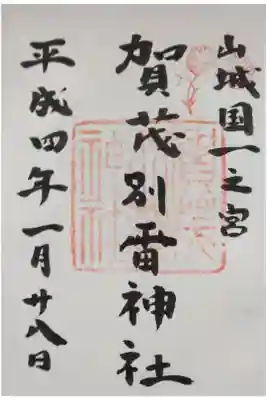 山城国一之宮
賀茂別雷神社
平成四年一月廿八日